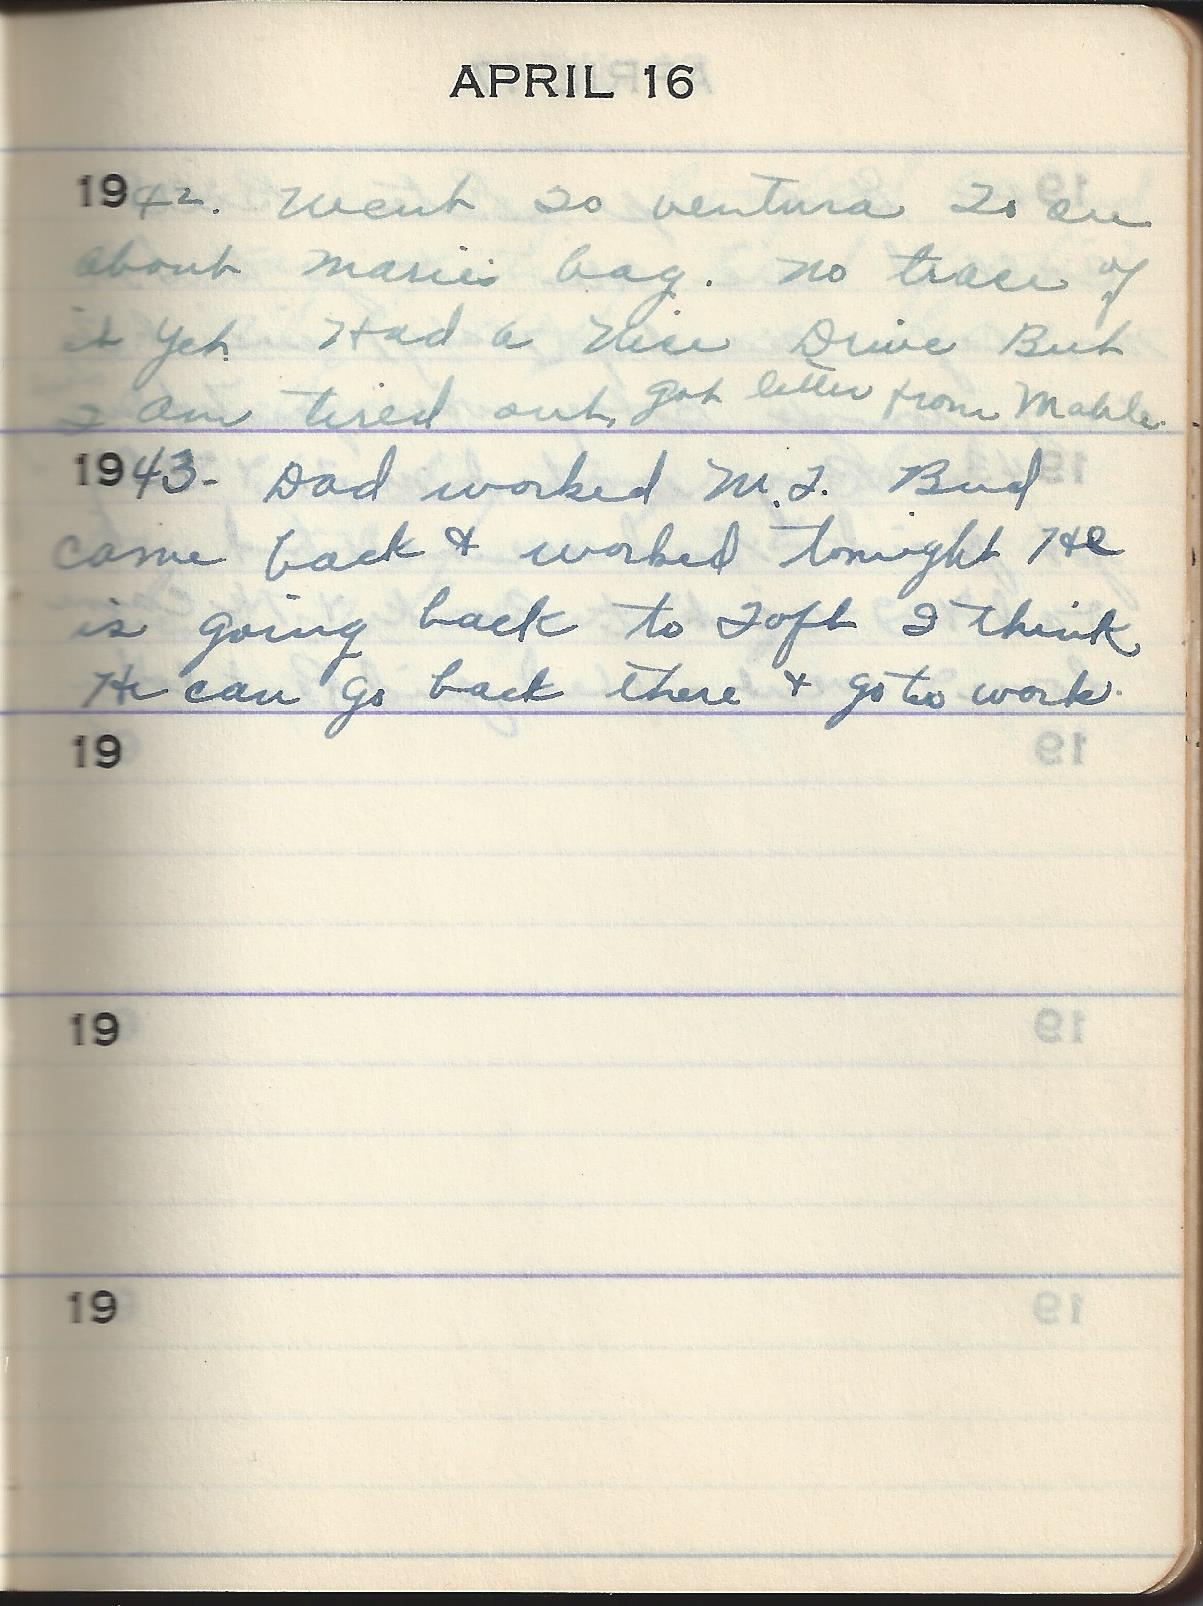 APRIL 16
1942. Went to ventura to see
about Marie's bag. No trace of
it yet. Had a Nice Drive But
I am tired out. got letter from Mable.
1943- Dad worked M.T. Bud
came back & worked tonight He
is going back to Toft I think
He can go back there & go to work.
19
19
19